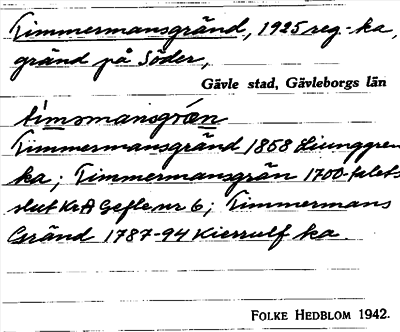 Timmermansgränd, 1925 reg-ka,
gränd på Söder,
Gävle stad, Gävleborgs län
timsmansgræn
Timmermansgränd 1858 Ljunggren
ka; Timmermansgrän 1700-talets
slut KrA Gefle nr 6; Timmermans
Gränd 1787-94 Kierrulf ka.
FOLKE HEDBLOM 1942.